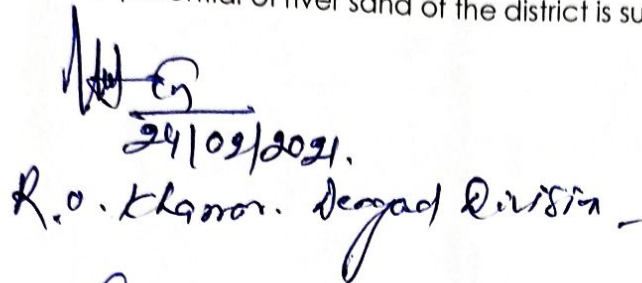 of river sand of the district is su
24/02/2021.
R.O. Khanon. Division